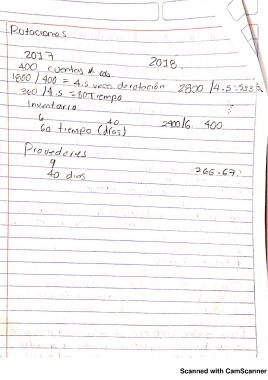 Rotaciones
2017 2018.
400 cuentas x cob
1800 / 400 = 4.5 veces de rotación 2800 / 4.5
360 / 4.5 = 80 Tiempo
Inventario
6 40
60 tiempo (días) 2400/6 400
Provedores
9 266.67
40 días
Scanned with CamScanner